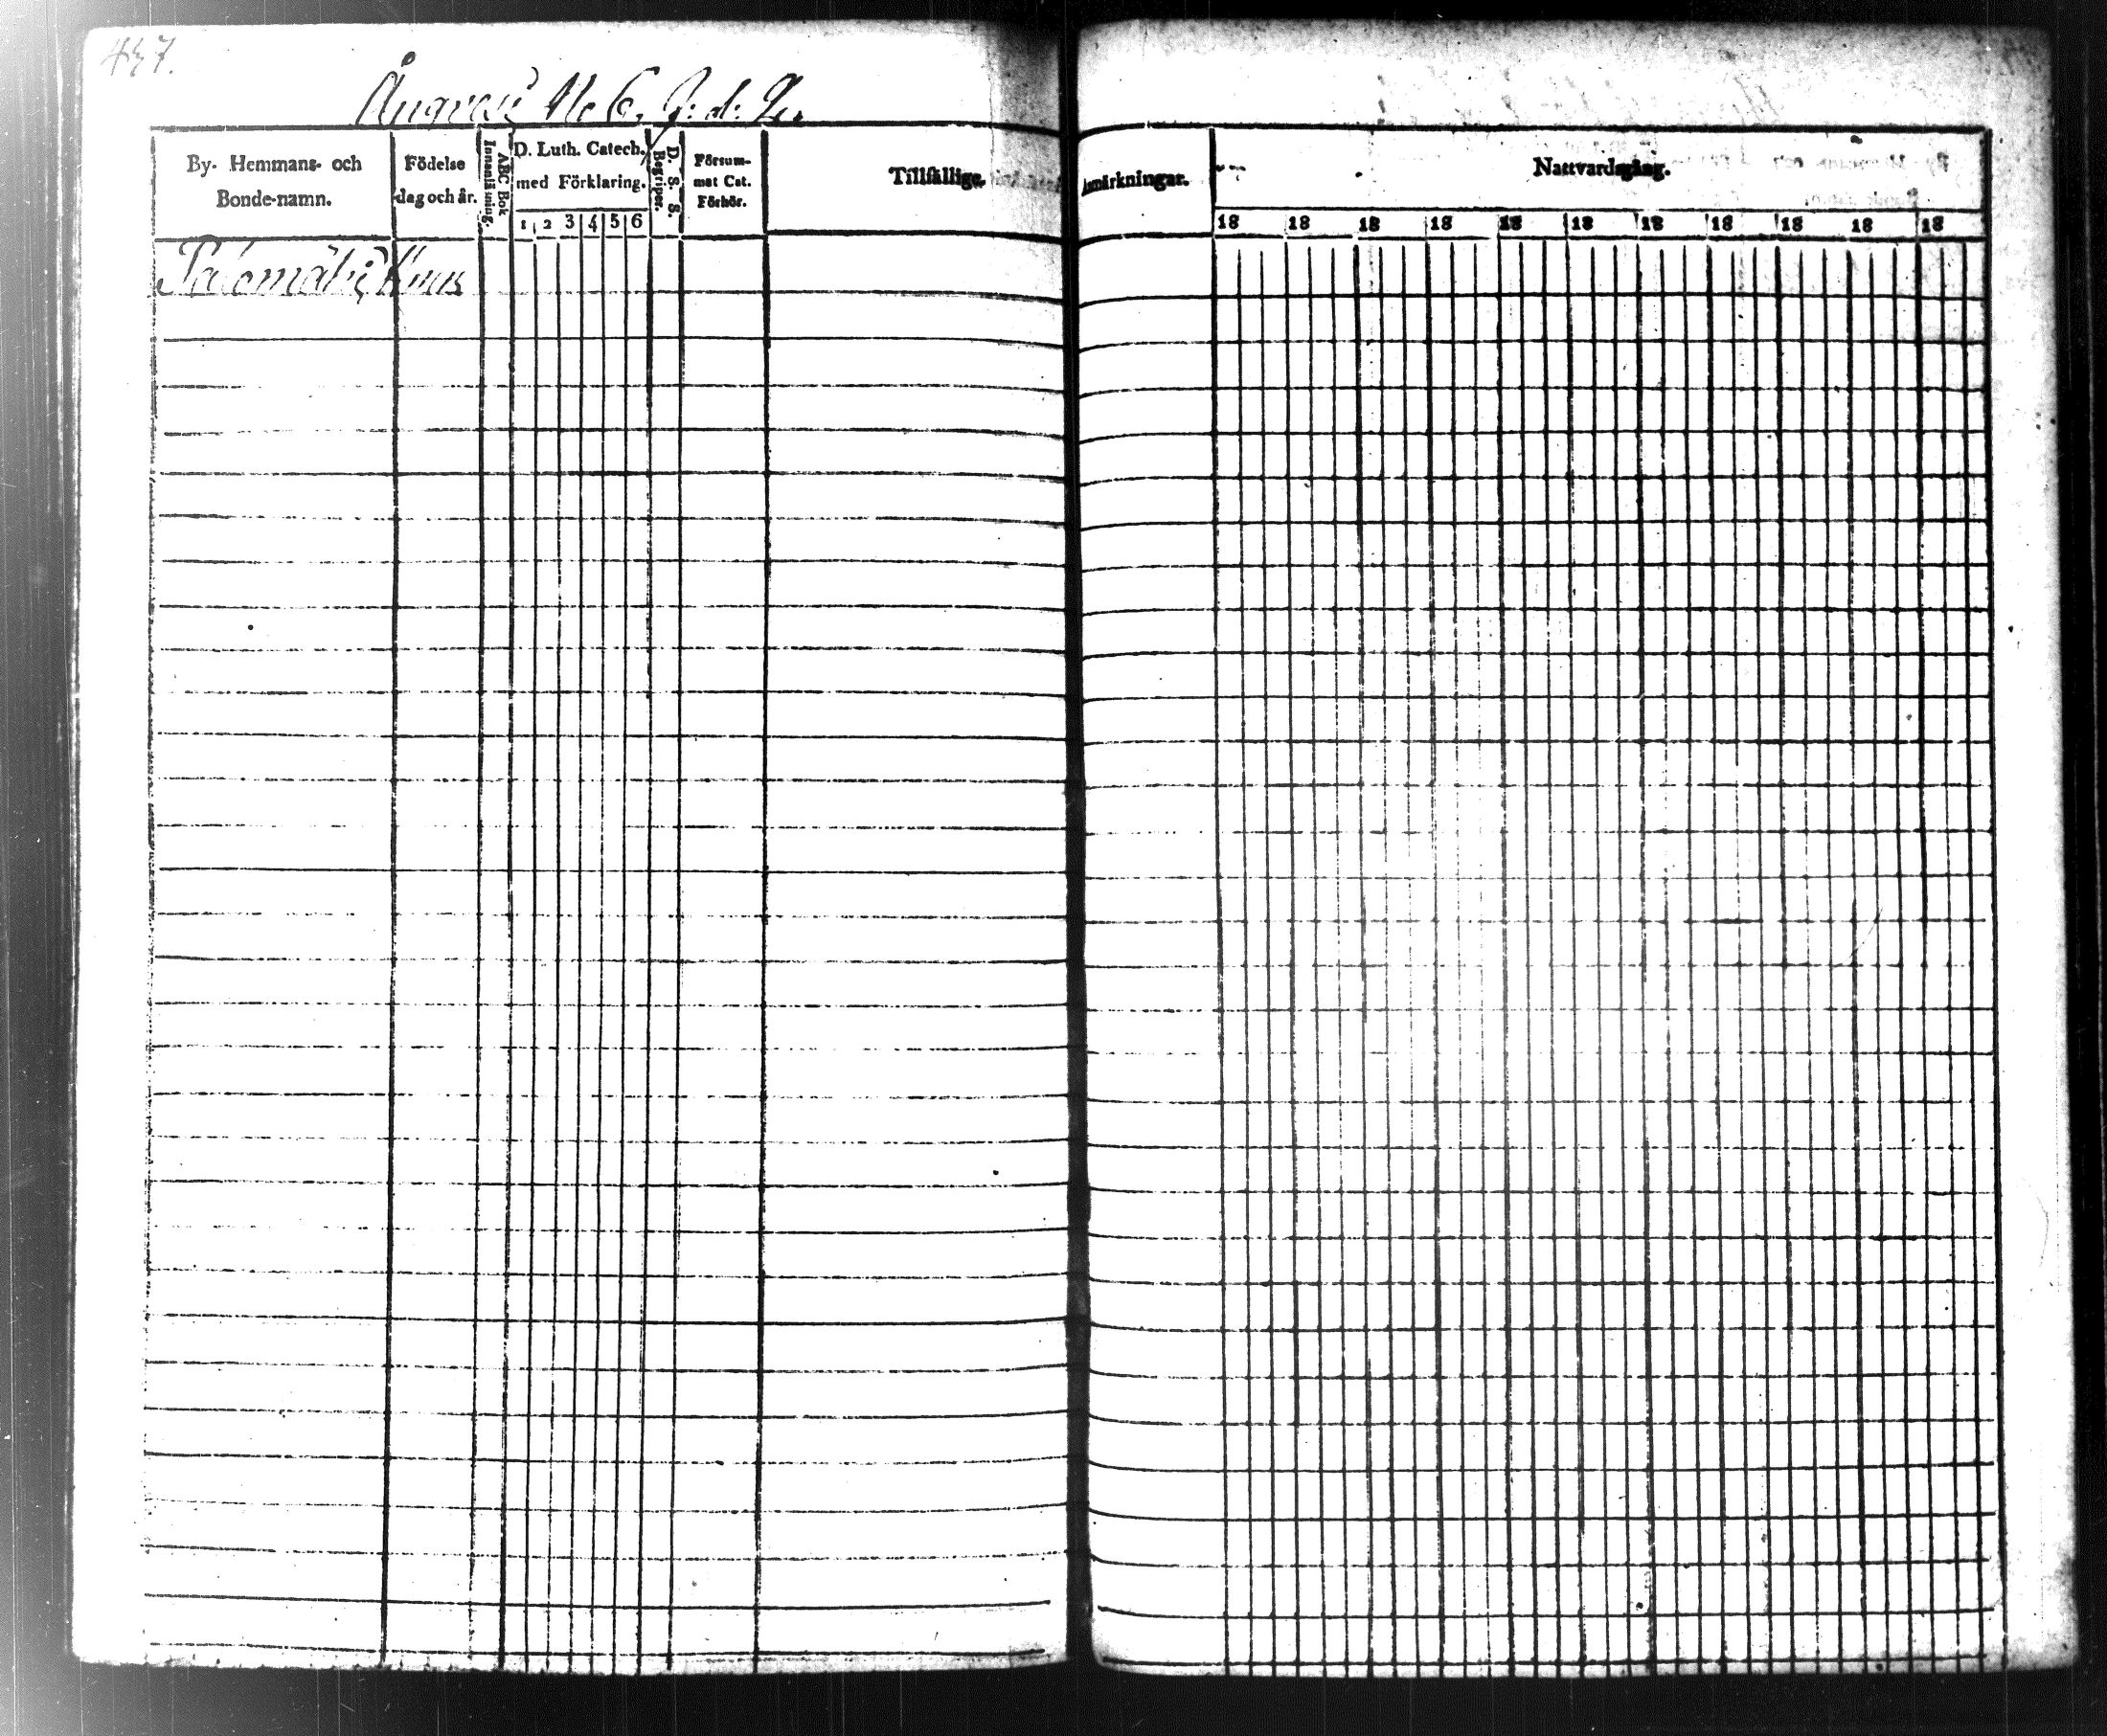 437.
No 6.
By- Hemmans- och
Bonde-namn.
Födelse
dag och år.
ABC Bok
Innanläsning.
D. Luth. Catech.
med Förklaring.
1 2 3 4 5 6
D. S. S.
Begriper.
Försum-
mat Cat.
Förhör.
Tillfällige
Anmärkningar.
Nattvardsgång.
18 18 18 18 18 18 18 18 18 18 18
Palomäki